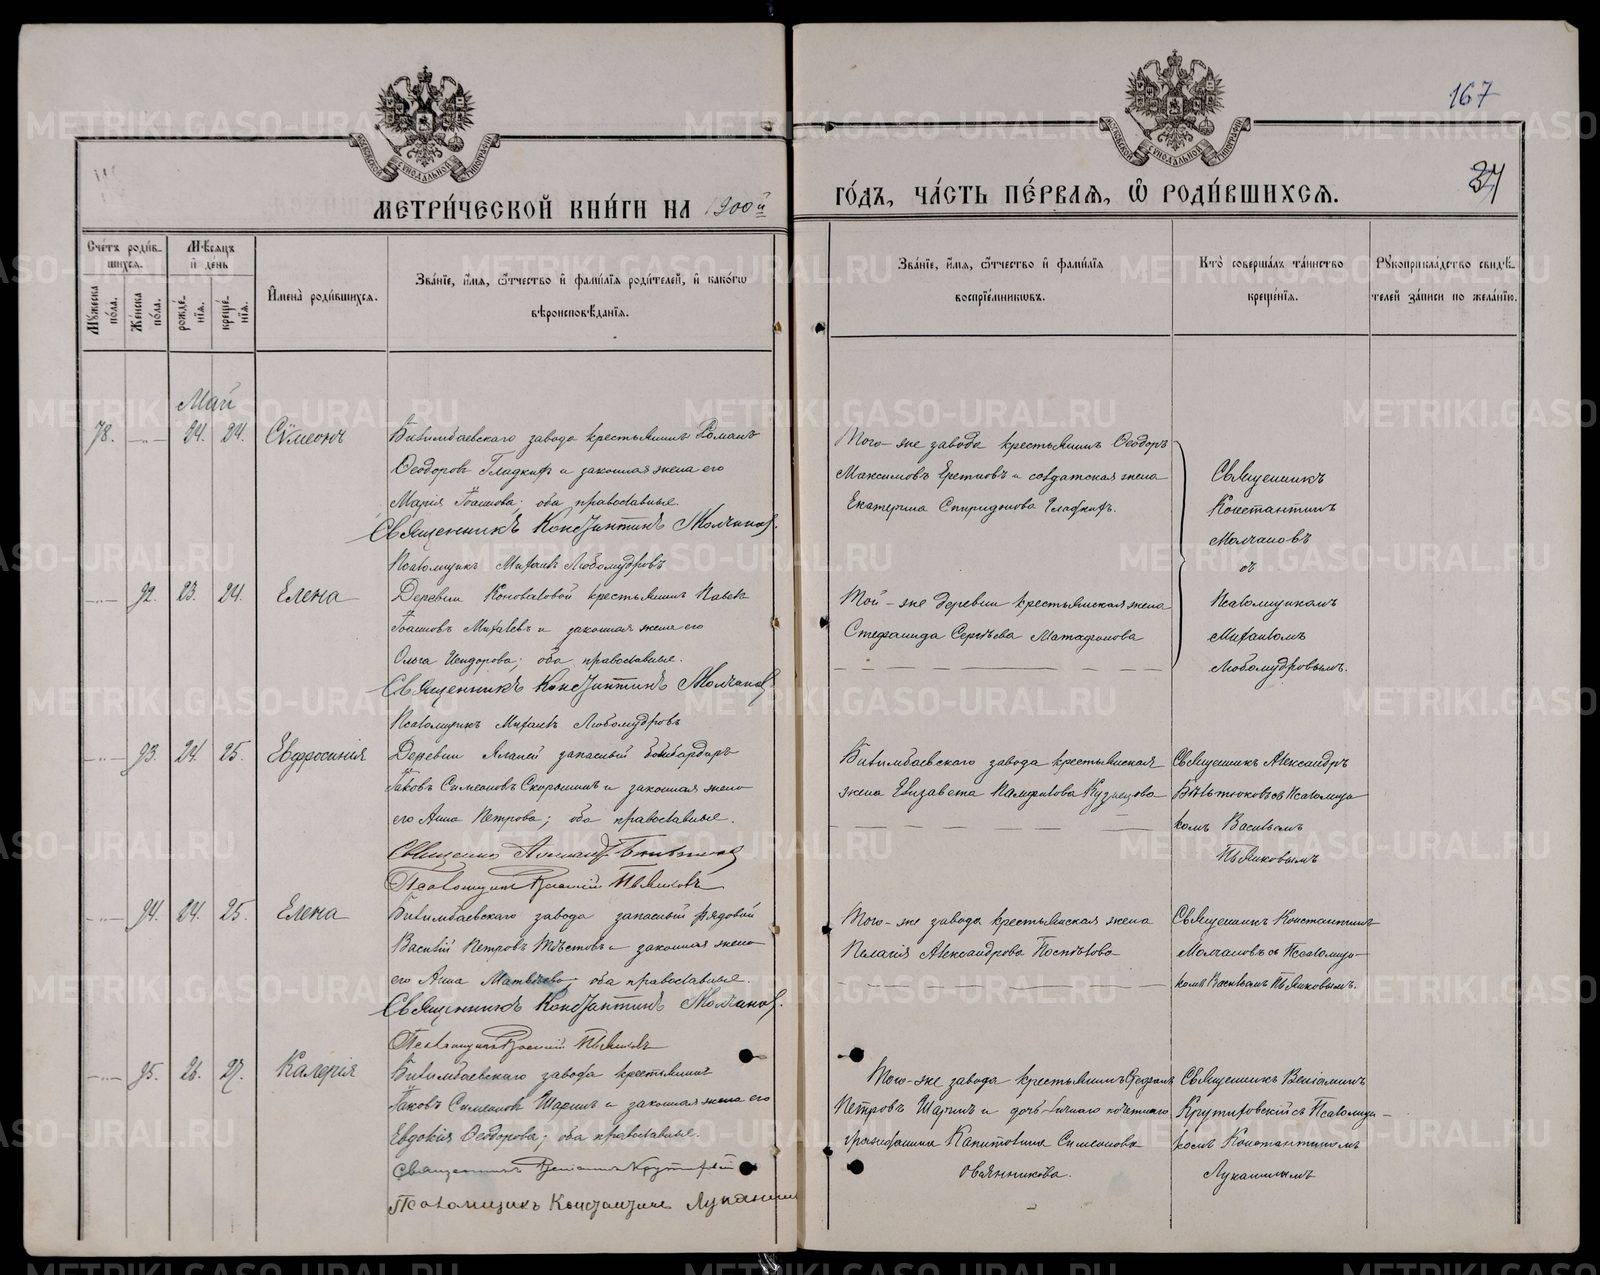 167
34
МЕТРИ́ЧЕСКОЙ КНИ́ГИ НА 1900й
ГО́ДЪ, ЧА́СТЬ ПЕ́РВАѦ, Ѽ РОДИ́ВШИХСѦ.
Сче́тъ роди́вшихсѧ.
Мѣ́сѧцъ и҆ де́нь
Мꙋ́жеска по́ла.
Же́нска по́ла.
рожде́нїѧ.
креще́нїѧ.
И҆мена̀ роди́вшихсѧ.
Зва́нїе, и҆́мѧ, ѻ҆́тчество и҆ фами́лїѧ роди́телей, и҆ како́гѡ
вѣроисповѣ́данїѧ.
Зва́нїе, и҆́мѧ, ѻ҆́тчество и҆ фами́лїѧ
воспрїе́мникѡвъ.
Кто̀ соверша́лъ та́инство
креще́нїѧ.
Рꙋкоприкла́дство свидѣ́телей за́писи по жела́нїю.
Май
78. 24. 24. Сѵмеонъ
Билимбаевскаго завода крестьянинъ Романъ
Ѳеодоровъ Гладкихъ и законная жена его
Марія Іоаннова; оба православные.
Священникъ Константинъ Молчановъ.
Псаломщикъ Михаилъ Любомудровъ
Того-же завода крестьянинъ Ѳеодоръ
Максимовъ Еретновъ и солдатская жена
Екатерина Спиридонова Гладкихъ.
Священникъ
Константинъ
Молчановъ
съ
Псаломщикомъ
Михаиломъ
Любомудровымъ.
92. 23. 24. Елена
Деревни Коноваловой крестьянинъ Павелъ
Іоанновъ Михалевъ и законная жена его
Ольга Исидорова; оба православные.
Священникъ Константинъ Молчановъ
Псаломщикъ Михаилъ Любомудровъ
Той-же деревни крестьянская жена
Стефанида Сергѣева Матафонова
93. 24. 25. Евфросинія
Деревни запасный бомбардиръ
Іаковъ Симеоновъ Скорынинъ и законная жена
его Анна Петрова; оба православные.
Священникъ Александръ
Псаломщикъ Василій Пьянковъ
Билимбаевскаго завода крестьянская
жена Елизавета Памфилова Кузнецова
Священникъ Александръ
Бѣльтюковъ съ Псаломщи-
комъ Васильемъ
Пьянковымъ
94. 24. 25. Елена
Билимбаевскаго завода запасный рядовой
Василій Петровъ Тѣстовъ и законная жена
его Анна Матвѣева; оба православные.
Священникъ Константинъ Молчановъ.
Псаломщикъ Василій Пьянковъ
Того-же завода крестьянская жена
Пелагія Александрова Поспѣлова
Священникъ Константинъ
Молчановъ съ Псаломщи-
комъ Васильемъ Пьянковымъ.
95. 26. 27. Калерія
Билимбаевскаго завода крестьянинъ
Іаковъ Симеоновъ Шаринъ и законная жена его
Евдокія Ѳеодорова; оба православные.
Священникъ Веніаминъ Крутиховскій
Псаломщикъ Константинъ Луканинъ
Того-же завода крестьянинъ
Петровъ Шаринъ и дочь личнаго почетнаго
гражданина Капитолина Симеонова
Овчинникова.
Священникъ Веніаминъ
Крутиховскій съ Псаломщи-
комъ Константиномъ
Луканинымъ
METRIKI.GASO-URAL.RU